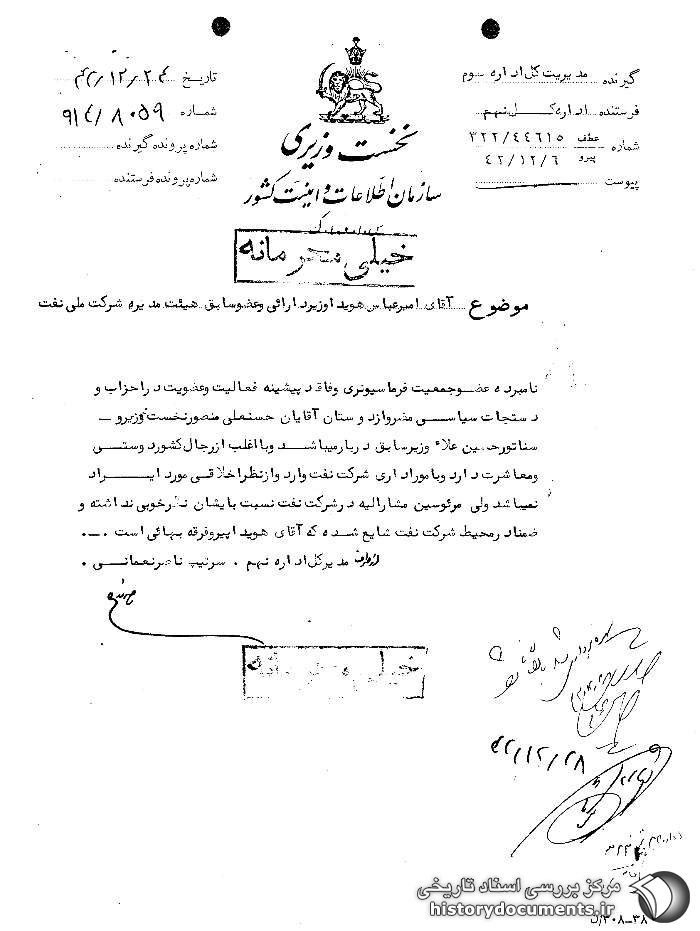 گیرنده مدیریت کل اداره سوم
فرستنده اداره کل نهم
شماره عطف ۳۲۲/۴۴۶۱۵
پیرو ۴۲/۱۲/۶
پیوست
نخست وزیری
سازمان اطلاعات و امنیت کشور
تاریخ ۴۲/۱۲/۲۴
شماره ۹۱۴/۸۰۵۹
شماره پرونده گیرنده
شماره پرونده فرستنده
خیلی محرمانه
موضوع آقای امیرعباس هویدا وزیر دارائی و عضو سابق هیئت مدیره شرکت ملی نفت
نامبرده عضو جمعیت فرماسیونری و فاقد پیشینه فعالیت و عضویت در احزاب و
دستجات سیاسی مضره و از دوستان آقایان حسنعلی منصور نخست وزیر و
سناتور حسین علاء وزیر سابق دربار میباشد و با اغلب از رجال کشور دوستی
و معاشرت دارد و بامور اداری شرکت نفت وارد و از نظر اخلاقی مورد ایراد
نمیباشد ولی مرئوسین مشارالیه در شرکت نفت نسبت بایشان نظر خوبی نداشته و
ضمنا در محیط شرکت نفت شایع شده که آقای هویدا پیرو فرقه بهائی است .
از طرف مدیر کل اداره نهم . سرتیپ ناصر نعمانی .
خیلی محرمانه
۴۲/۱۲/۲۸
مرکز بررسی اسناد تاریخی
historydocuments.ir
۳۰۸-۳۸